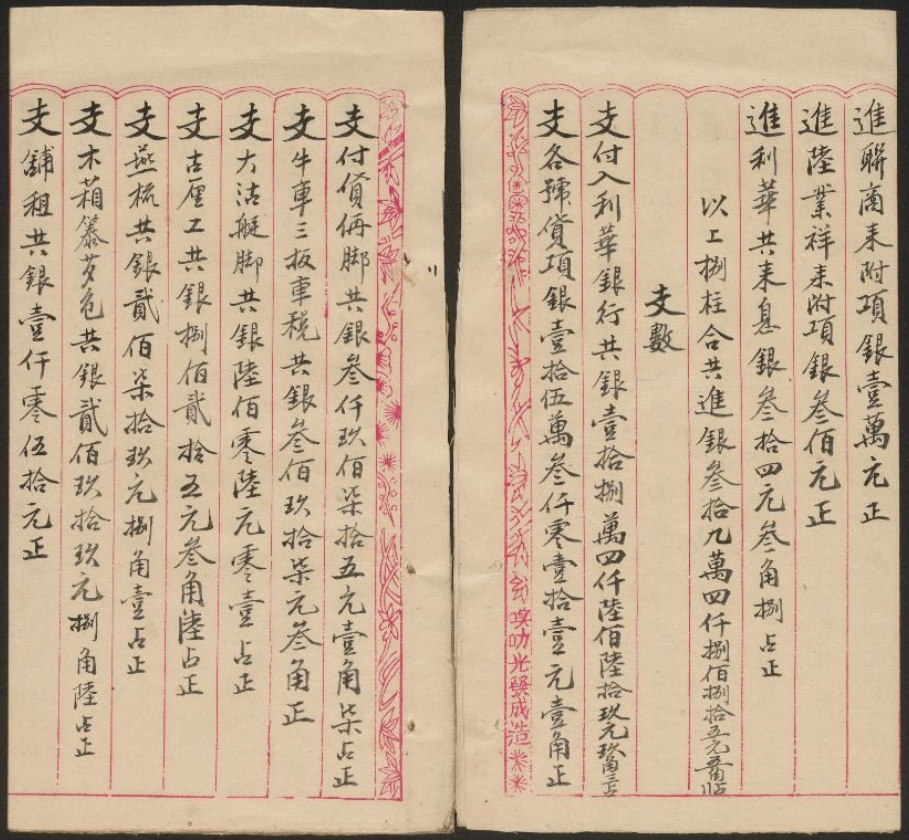 進聯商來附項銀壹萬元正
進陸業祥來附項銀叁佰元正
進利華共來息銀叁拾四元叁角捌占正
以上捌柱合共進銀叁拾九萬四仟捌佰捌拾五元
支數
支付入利華銀行共銀壹拾捌萬四仟陸佰陸拾玖元玖角三占
支各號貨項銀壹拾伍萬叁仟零壹拾壹元壹角正
光興成造
支付貨俩脚共銀叁仟玖佰柒拾五元壹角柒占正
支牛車三板車税共銀叁佰玖拾柒元叁角正
支大沽艇脚共銀陸佰零陸元零壹占正
支古厘工共銀捌佰貳拾五元叁角陸占正
支燕梳共銀貳佰柒拾玖元捌角壹占正
支木箱共銀貳佰玖拾玖元捌角陸占正
支舖租共銀壹仟零伍拾元正